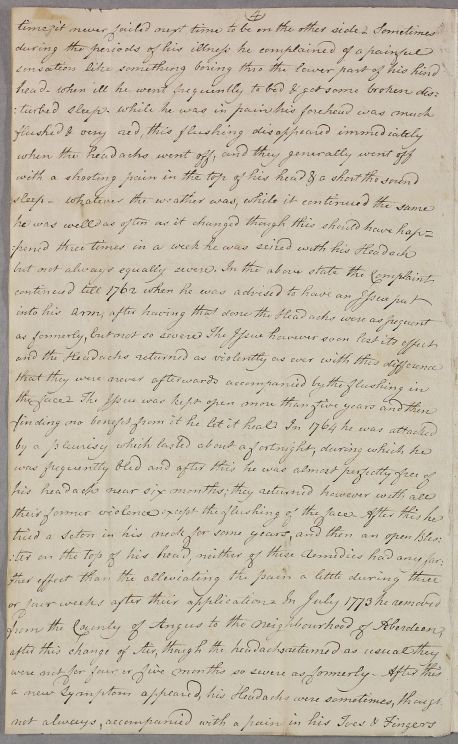 4
times it never failed next time to be on the other side. Sometimes
during the periods of his illness he complained of a painful
sensation like something boring thro the lower part of his hind
head. when ill he went frequently to bed & got some broken dis=
=turbed sleep. while he was in pain his forehead was much
flushed & very red, this flushing disappeared immediately
when the headachs went off, and they generally went off
with a shooting pain in the top of his head & a short tho sound
sleep. Whatever the weather was, while it continued the same
he was well as often as it changed though this should have hap=
=pened three times in a week he was seized with his Headach
but not always equally severe. In the above state the Complaint
continued till 1762 when he was advised to have an Issue put
into his arm, after having that done the Headachs were as frequent
as formerly, but not so severe The Issue however soon lost its effect
and the Headachs returned as violently as ever with this difference
that they were never afterwards accompanied by the flushing in
the face. The Issue was kept open more than five years and then
finding no benefit from it he let it heal. In 1764 he was attacked
by a pleurisy which lasted about a fortnight, during which he
was frequently bled and after this he was almost perfectly free of
his headachs near six months; they returned however with all
their former violence except the flushing of the face. After this he
tried a seton in his neck for some years, and then an open Blis=
=ter on the top of his head, neither of these remedies had any far=
ther effect than the alleviating the pain a little during three
or four weeks after their application. In July 1773 he removed
from the County of Angus to the neighbourhood of Aberdeen,
after this change of Air, though the headachs returned as usual they
were not for four or five months so severe as formerly. After this
a new Symptom appeared, his Headachs were sometimes, though
not always, accompanied with a pain in his Toes & Fingers